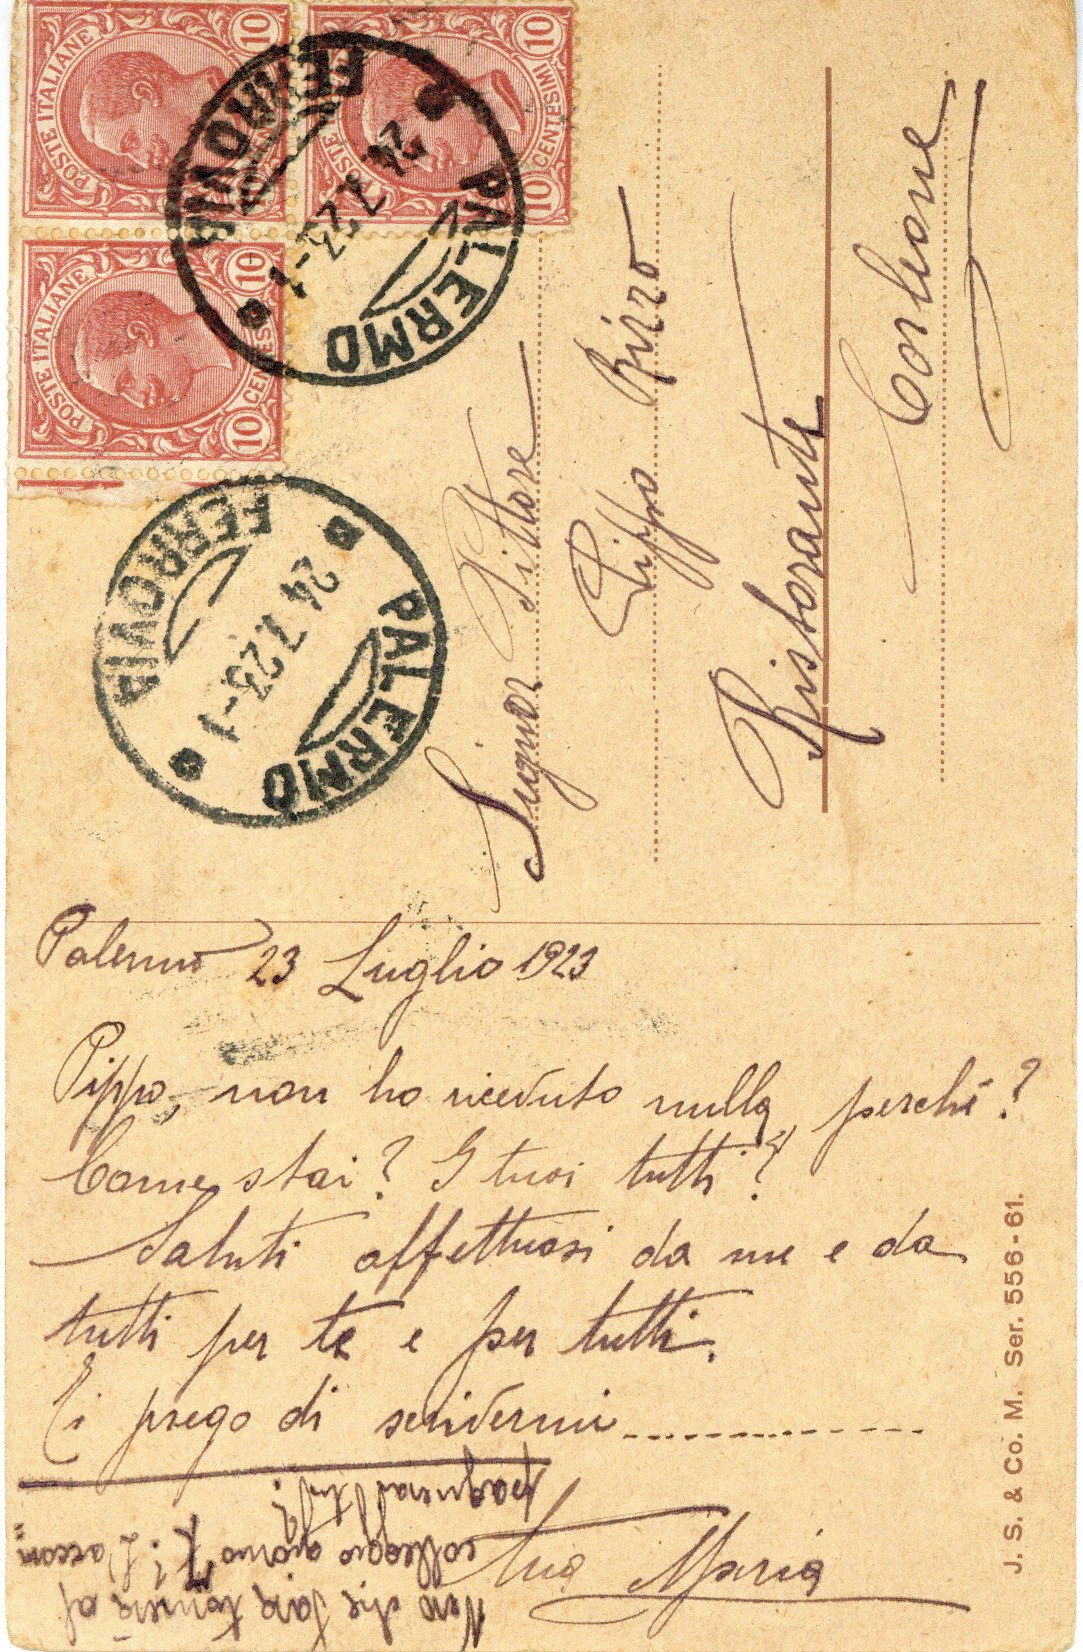 POSTE ITALIANE
10 CENTESIMI 10
POSTE ITALIANE
10 CENTESIMI 10
10 CENTESIMI 10
PALERMO FERROVIA
24.7.23-1
PALERMO FERROVIA
24.7.23-1
Signor Pittore
Pippo Rizzo
Ristorante
Corleone
Palermo 23 Luglio 1923
Pippo, non ho ricevuto nulla, perché?
Come stai? I tuoi tutti?
Saluti affettuosi da me e da
tutti per te e per tutti.
Ti prego di scrivermi.............
Tua Maria
che Sara tornerà al
collegio giorno
J. S. & Co. M. Ser. 556-61.